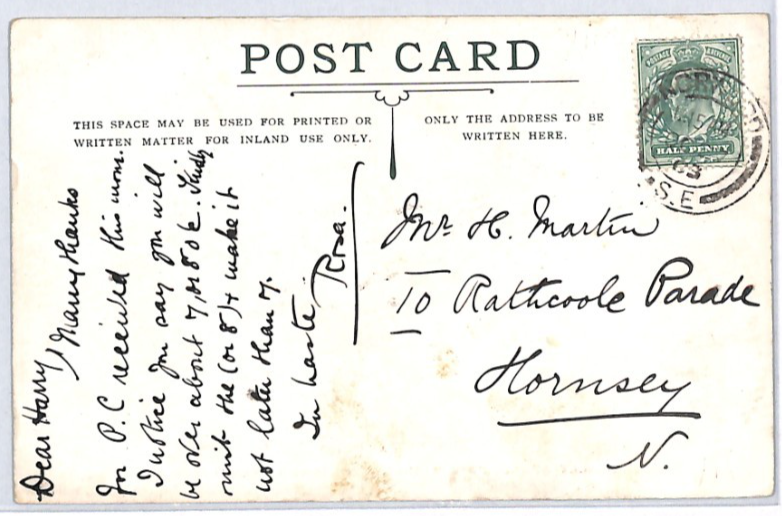 POST CARD
THIS SPACE MAY BE USED FOR PRINTED OR
WRITTEN MATTER FOR INLAND USE ONLY.
ONLY THE ADDRESS TO BE
WRITTEN HERE.
POSTAGE
HALF PENNY
S.E
Mr. H. Martin
10 Rathcoole Parade
Hornsey
N.
Dear Harry, Many thanks
for P.C received this morn.
I notice you say you will
be over about 7, or 8 o'c. Kindly
omit the (or 8) & make it
not later than 7.
In haste
Rosa.